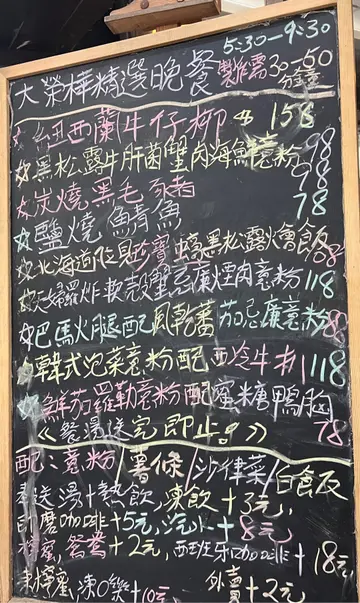 5:30-9:30
大榮棒精選晚餐 製作需30至50分鐘
☆紐西蘭牛仔柳 158
☆黑松露牛肝菌蟹肉海鮮意粉 98
☆炭燒黑毛豬 98
☆鹽燒鯖魚 78
☆北海道帶貝珍寶蠔黑松露燴飯 8
☆天婦羅炸軟殼蟹忌廉煙肉意粉 118
☆巴馬火腿配風乾蕃茄忌廉意粉 8
☆韓式泡菜意粉配西冷牛扒 118
☆鮮茄羅勒意粉配蜜糖鴨胸 78
《餐湯送完即止。》
配:意粉/薯條/沙律菜/白飯
奉送湯+熱飲,凍飲+3元,
即磨咖啡+5元,汽水+8元
蜜,鴛鴦+2元,西班牙咖啡+18元
檸蜜,凍 樂+10元 外賣+2元